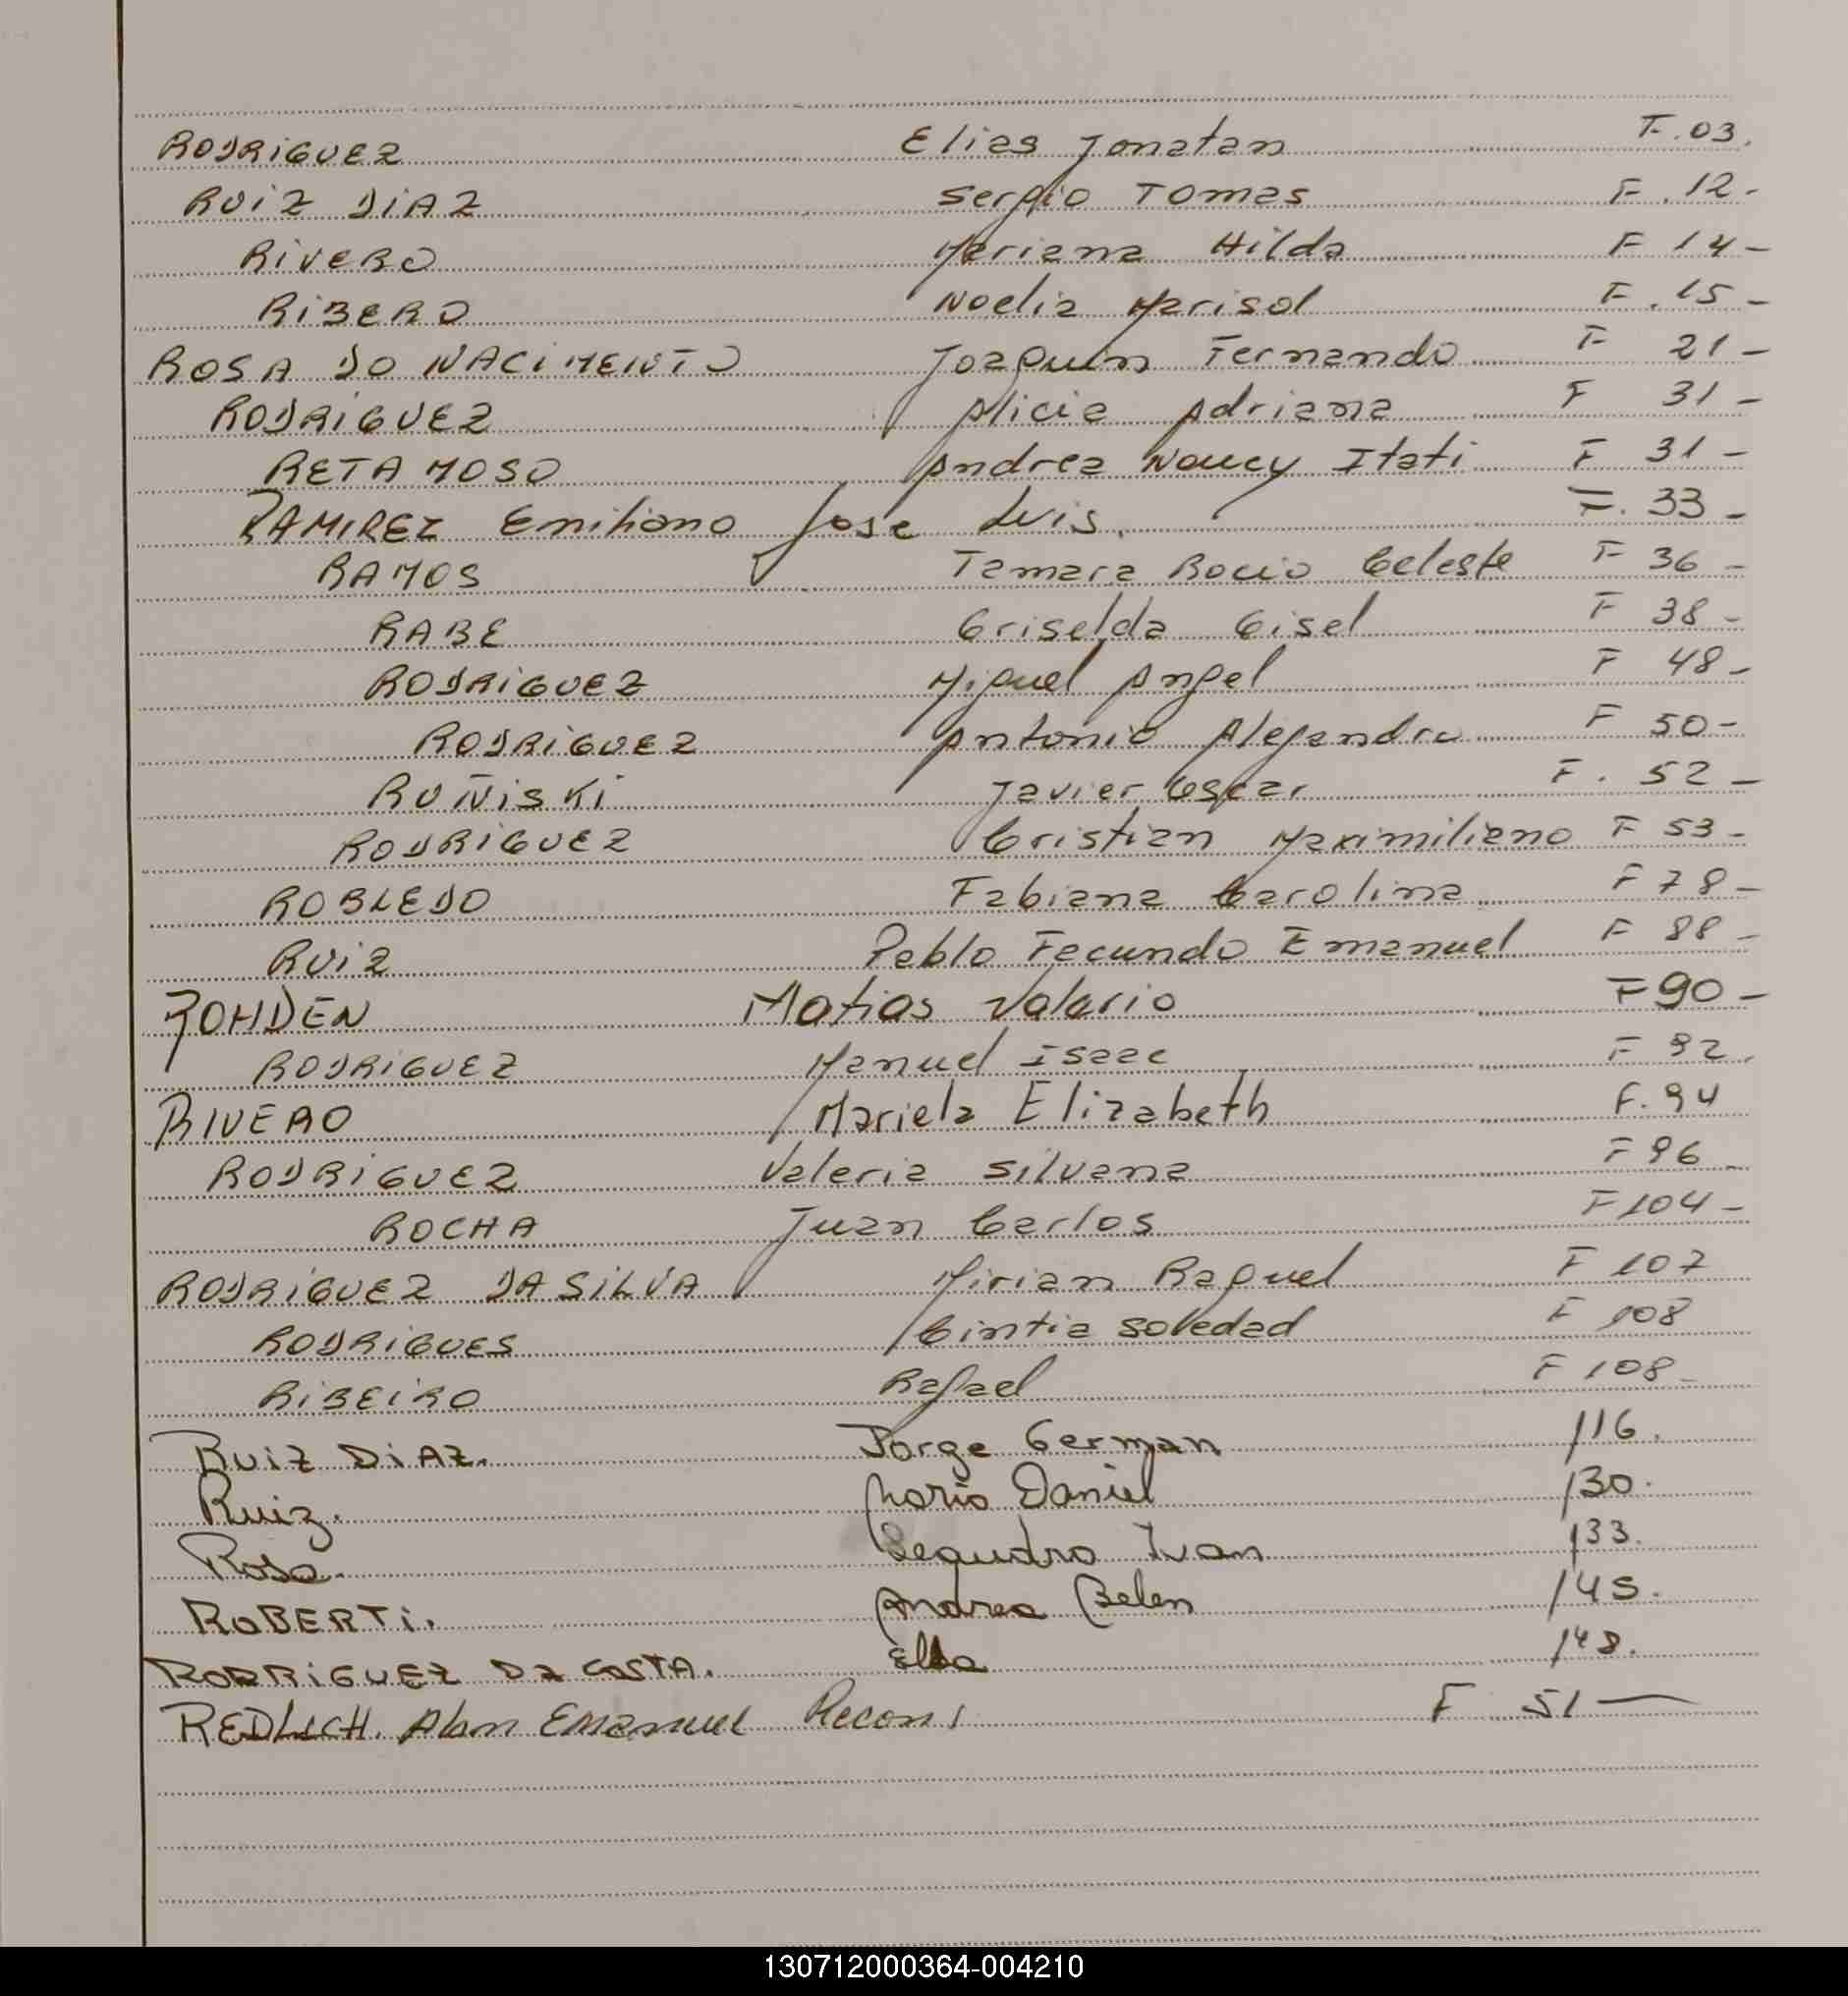 RODRIGUEZ Elias Jonatan F.03.
RUIZ DIAZ Sergio Tomas F.12-
RIVERO Mariana Hilda F 14-
RIBERO Noelia Marisol F.15-
ROSA DO NACIMENTO Joaquin Fernando F 21-
RODRIGUEZ Alicia Adriana F 31-
RETAMOSO Andrea Nancy Itati F 31-
RAMIREZ Emiliano Jose Luis. F. 33-
RAMOS Tamara Rocio Celeste F 36-
RABE Griselda Gisel F 38-
RODRIGUEZ Miguel Angel F 48-
RODRIGUEZ Antonio Alejandro F 50-
RUÑISKI Javier Oscar F. 52-
RODRIGUEZ Cristian Maximiliano F 53-
ROBLEDO Fabiana Carolina F 78-
RUIZ Pablo Facundo Emanuel F 88-
ROHDEN Matias Valerio F 90-
RODRIGUEZ Manuel Isaac F 92.
RIVERO Mariela Elizabeth F.94
RODRIGUEZ Valeria Silvana F 96-
ROCHA Juan Carlos F 104-
RODRIGUEZ DA SILVA Mirian Raquel F 107
RODRIGUES Cintia Soledad F 108
RIBEIRO Rafael F 108-
RUIZ DIAZ. Jorge German 116.
Ruiz. Mario Daniel 130.
Rosa. Leandro Ivan 133.
ROBERTI. Andrea Belen 145.
RODRIGUEZ DA COSTA. Elba 148.
REDLICH. Alan Emanuel Recon. F 51-
130712000364-004210